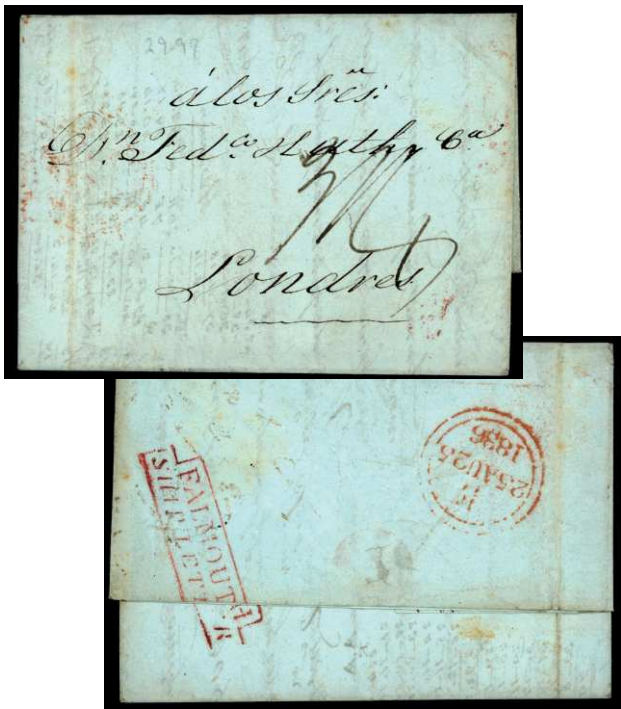 29-97
á los Sres:
Dn. Fedco. Huth y Ca
Londres
FALMOUTH
SHIP LETTER
H
25 AU 25
1836